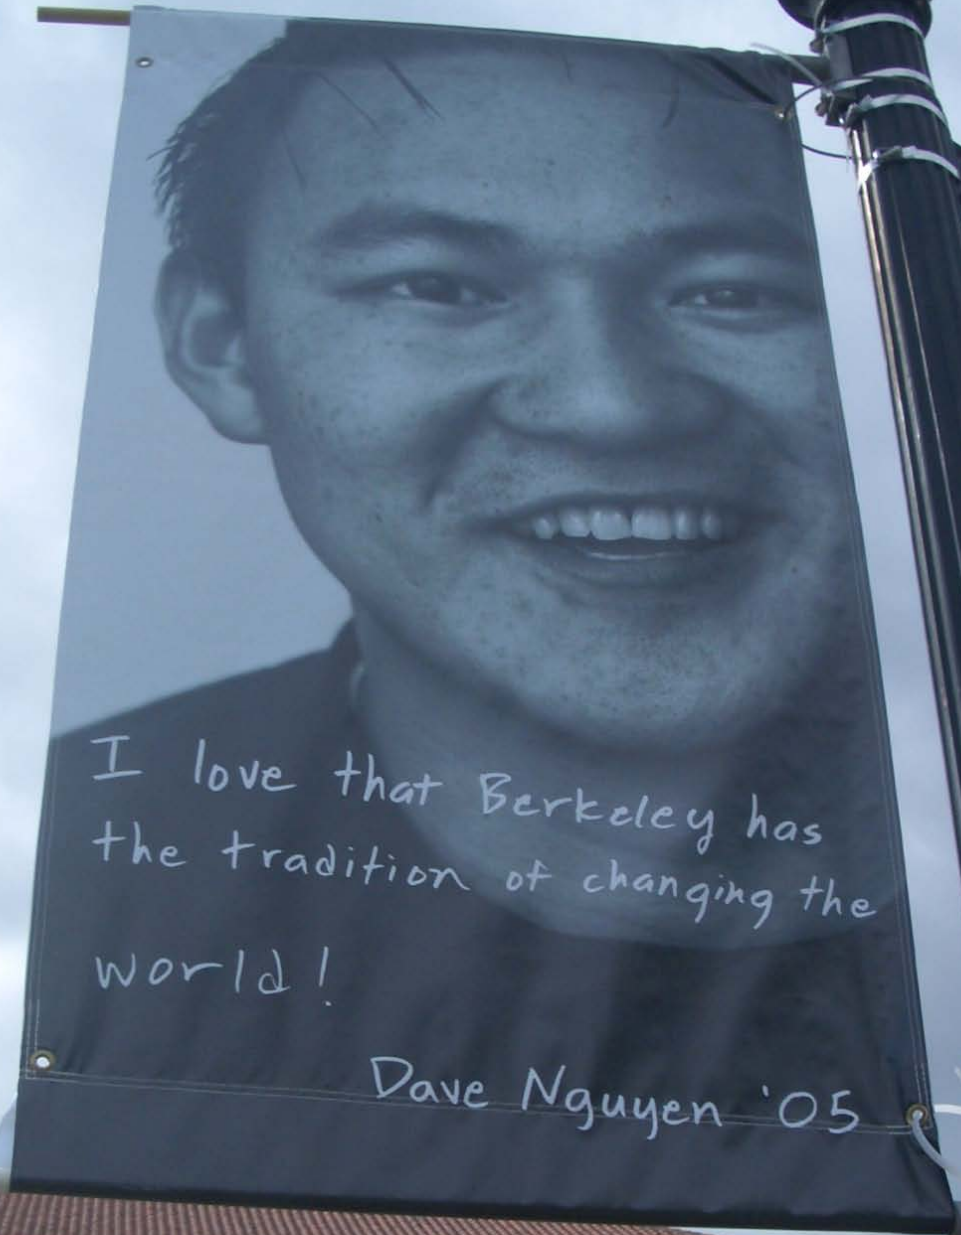 I love that Berkeley has
the tradition of changing the
world!
Dave Nguyen '05